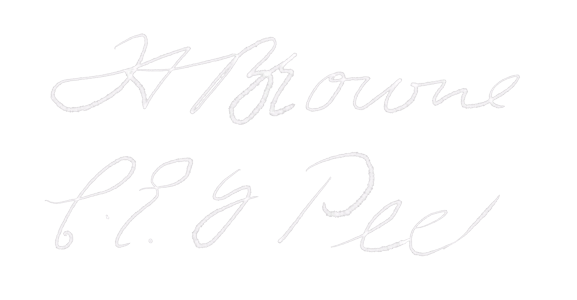 H Browne
C. E. G Pee